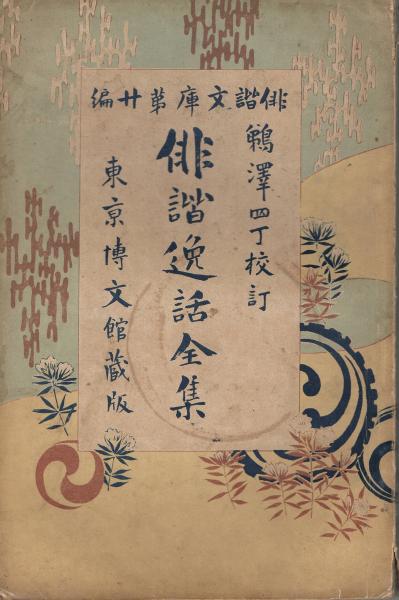 俳諧文庫第廿編
鵜澤四丁校訂
俳諧逸話全集
東京博文館蔵版